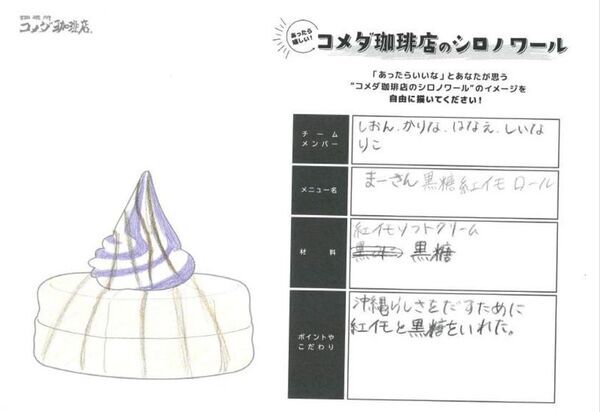 珈琲所
コメダ珈琲店
あったら
嬉しい!
コメダ珈琲店のシロノワール
「あったらいいな」とあなたが思う
“コメダ珈琲店のシロノワール”のイメージを
自由に描いてください!
チーム
メンバー
しおん.かりな.はなえ.しいな
りこ
メニュー名
まーさん黒糖紅イモロール
材料
紅イモソフトクリーム
黒糖
ポイントや
こだわり
沖縄らしさをだすために
紅イモと黒糖をいれた。